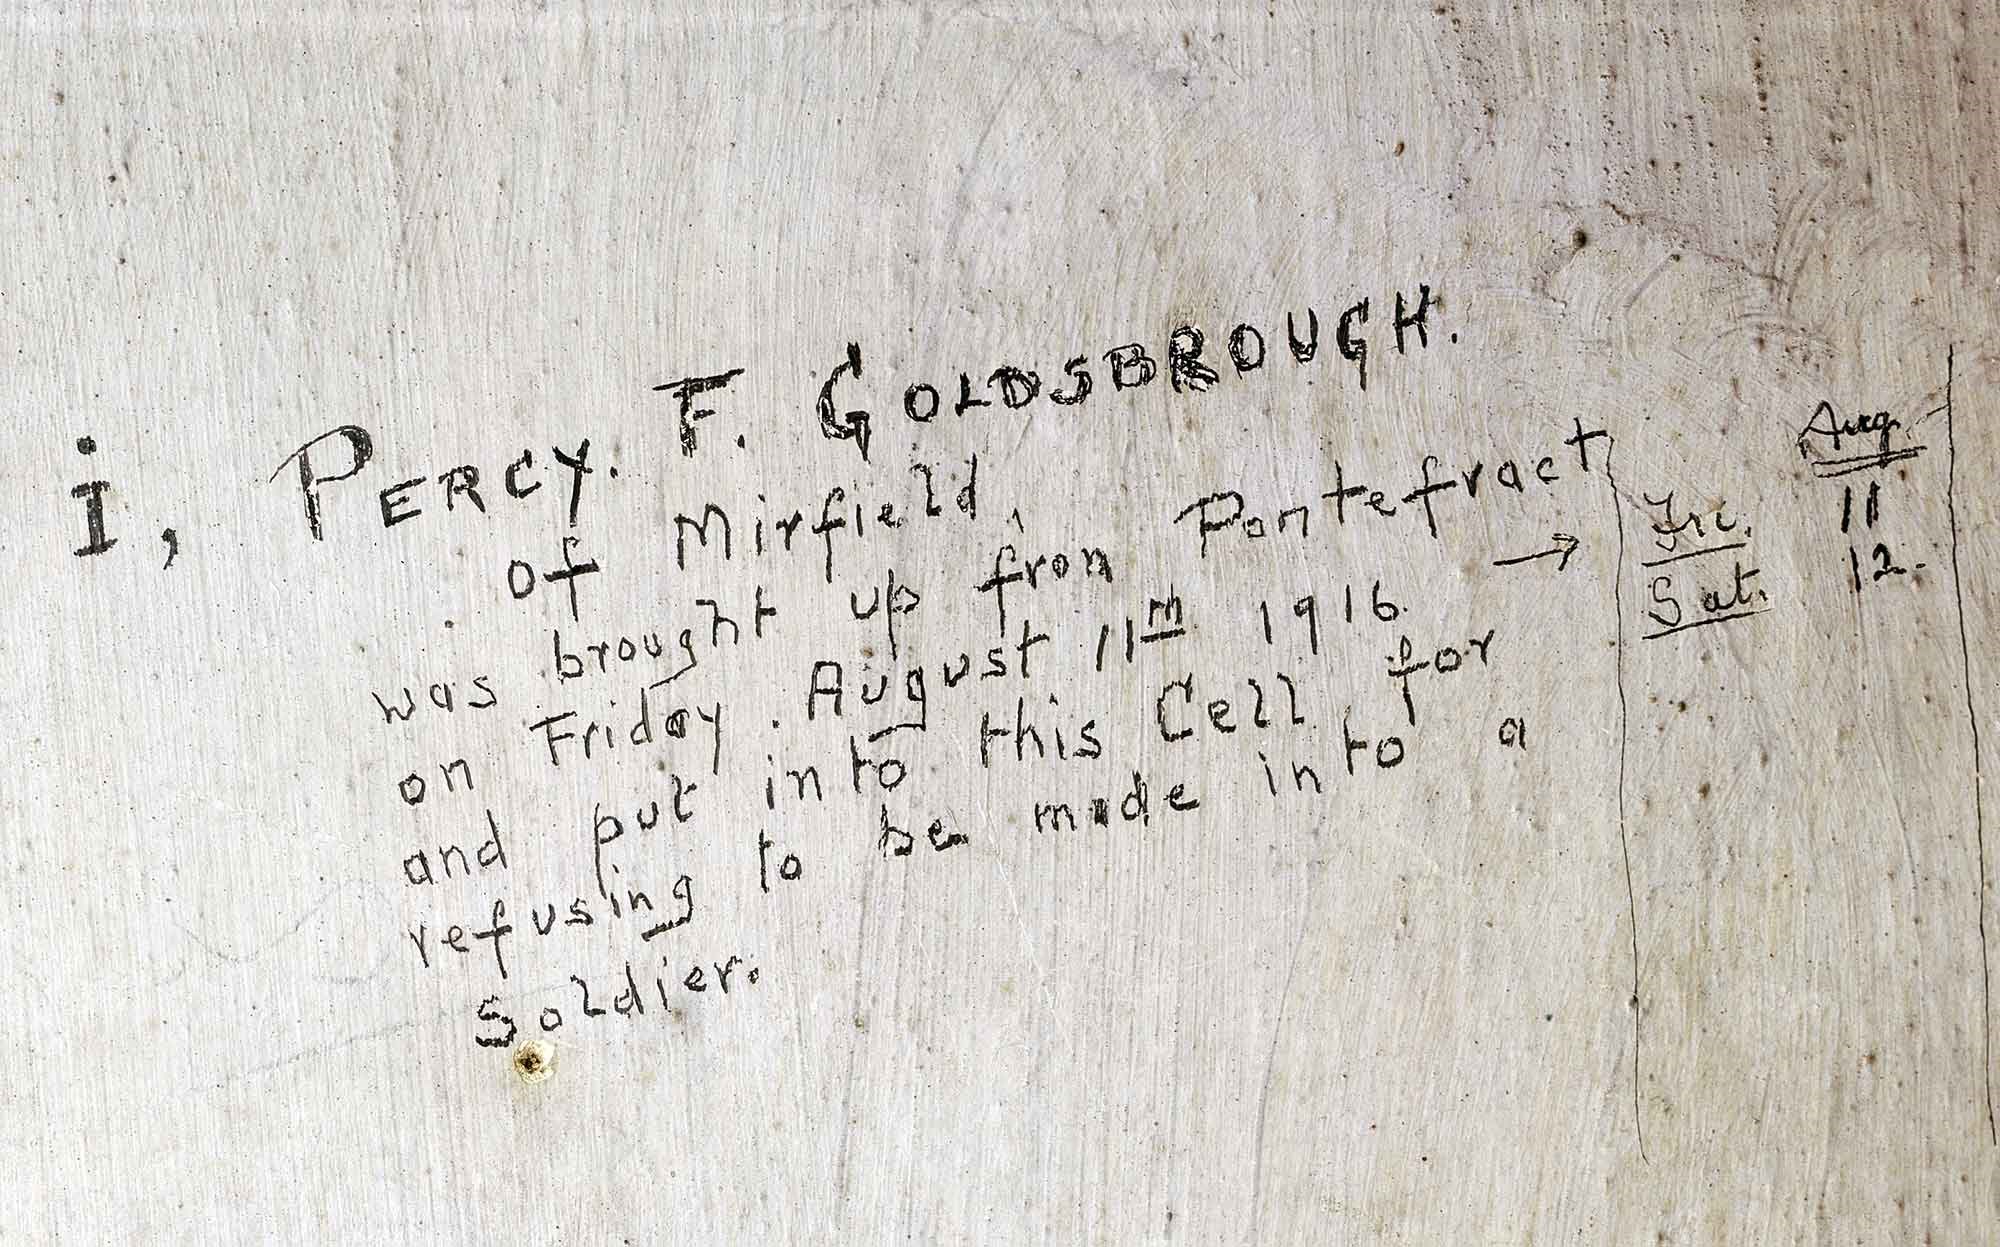 i, PERCY. F. GOLDSBROUGH.
of Mirfield,
was brought up from Pontefract
on Friday. August 11th 1916.
and put into this Cell for
refusing to be made into a
Soldier.
→
Aug.
Fri. 11
Sat. 12.